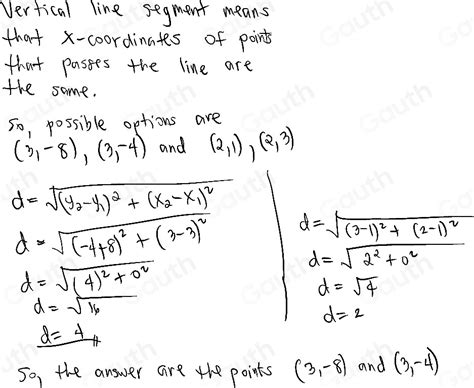 Vertical line segment means
that x-coordinates of points
that passes the line are
the same.
So, possible options are
(3,-8), (3,-4) and (2,1), (2,3)
d = √(y₂-y₁)² + (x₂-x₁)²
d = √(-4+8)² + (3-3)²
d = √(4)² + 0²
d = √16
d = 4
d = √(3-1)² + (2-1)²
d = √2² + 0²
d = √4
d = 2
So, the answer are the points (3,-8) and (3,-4)
Gauth